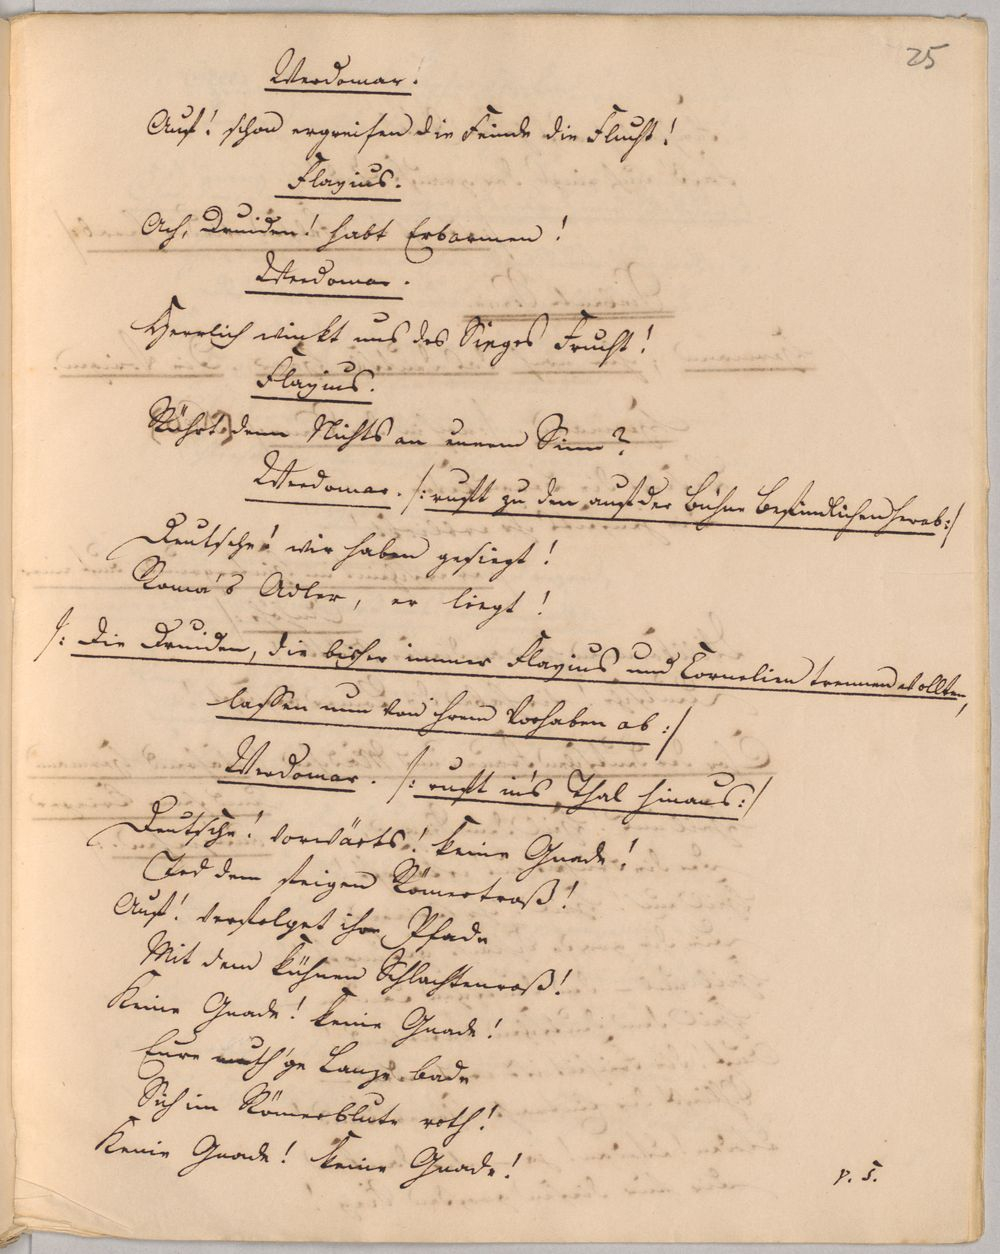 25
Werdomar!
Auf! schon ergreifen die Feinde die Flucht!
Flavius.
Ach, Druiden! habt Erbarmen!
Werdomar.
Herrlich winkt uns des Sieges Frucht!
Flavius.
Rührt denn Nichts an eurem Sinn?
Werdomar. /: ruft zu den auf der Bühne Befindlichen herab :/
Deutsche! wir haben gesiegt!
Roma's Adler, er liegt!
/: Die Druiden, die bisher immer Flavius und Cornelien trennen wollten,
lassen nun von ihrem Vorhaben ab :/
Werdomar. /: ruft in's Thal hinaus :/
Deutsche! vorwärts! keine Gnade!
Tod dem feigen Römertroß!
Auf! verfolget ihre Pfade
Mit dem kühnen Schlachtenroß!
Keine Gnade! keine Gnade!
Eure muth'ge Lanze bade
Sich im Römerblute roth!
Keine Gnade! keine Gnade!